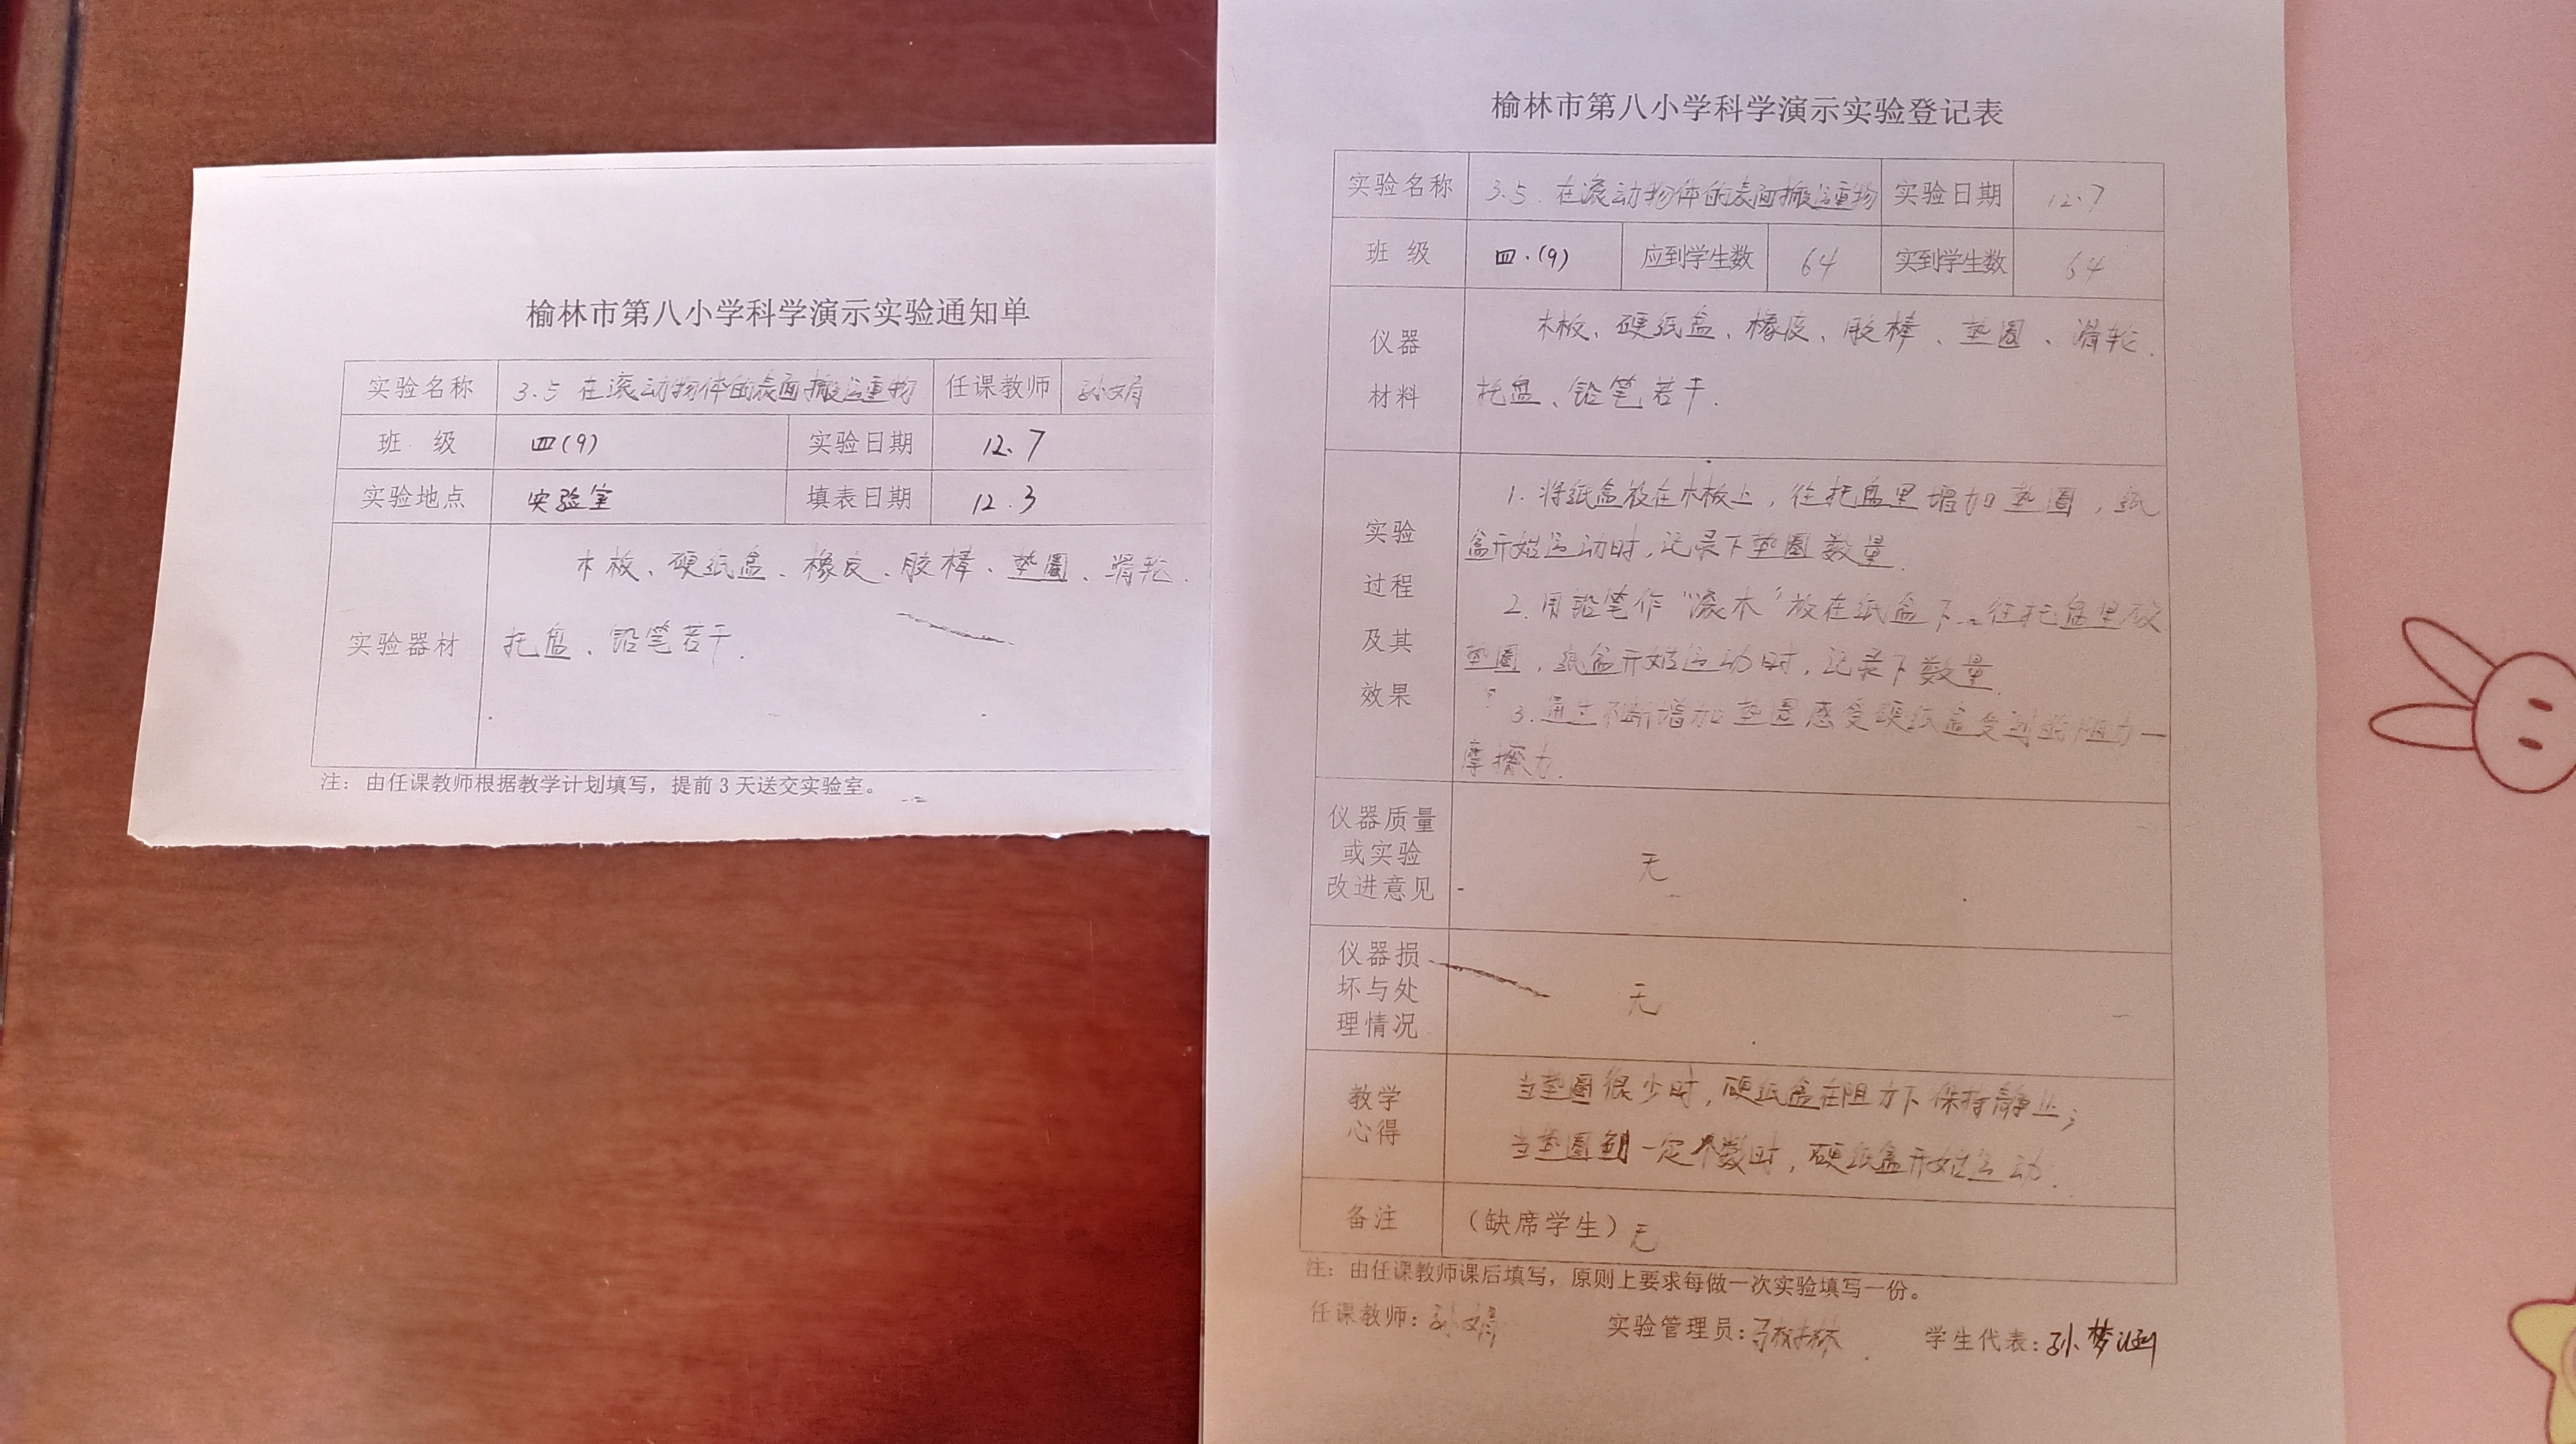 榆林市第八小学科学演示实验通知单
实验名称 3.5 在滚动物体的表面搬运重物 任课教师 孙娟
班 级 四(9) 实验日期 12.7
实验地点 实验室 填表日期 12.3
实验器材 木板、硬纸盒、橡皮、胶棒、垫圈、滑轮.
托盘、铅笔若干.
注：由任课教师根据教学计划填写，提前3天送交实验室。
榆林市第八小学科学演示实验登记表
实验名称 3.5. 在滚动物体的表面搬运重物 实验日期 12.7
班 级 四.(9) 应到学生数 64 实到学生数 64
仪器
材料
木板、硬纸盒、橡皮、胶棒、垫圈、滑轮.
托盘、铅笔若干.
实验
过程
及其
效果
1. 将纸盒放在木板上，往托盘里增加垫圈，纸
盒开始运动时，记录下垫圈数量.
2. 用铅笔作“滚木”放在纸盒下 往托盘里放
垫圈，纸盒开始运动时，记录下数量.
3. 通过不断增加垫圈感受硬纸盒受到的阻力—
摩擦力.
仪器质量
或实验
改进意见
无
仪器损
坏与处
理情况
无
教学
心得
当垫圈很少时，硬纸盒在阻力下保持静止；
当垫圈到一定个数时，硬纸盒开始运动.
备注 （缺席学生）无
注：由任课教师课后填写，原则上要求每做一次实验填写一份。
任课教师：孙娟 实验管理员： 学生代表：孙梦涵